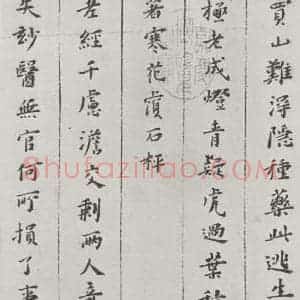 買山難淂隱種藥此逃生
極老成燈青疑虎過葉
著寒花石枰
經千慮澹交剩兩人
失妙醫無官何所損了事
shufaziliao.COM